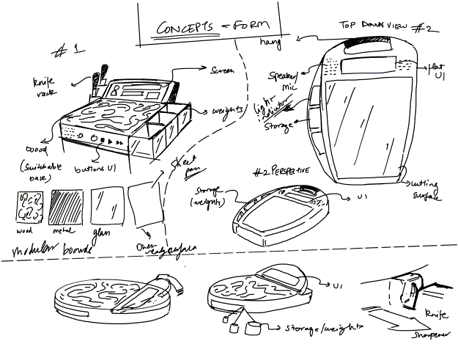 CONCEPTS - FORM
TOP DOWN VIEW #2
hang
# 1
Screen
knife
rack
Speaker/
mic
flat
UI
light
indicator
Storage
weights
wood
(suitable
base)
buttons UI
Sheet
pan
#2 PERSPECTIVE
Storage
(weights)
UI
cutting
surface
wood
metal
glass
Other
modular boards
UI
Storage/weights
knife
sharpener